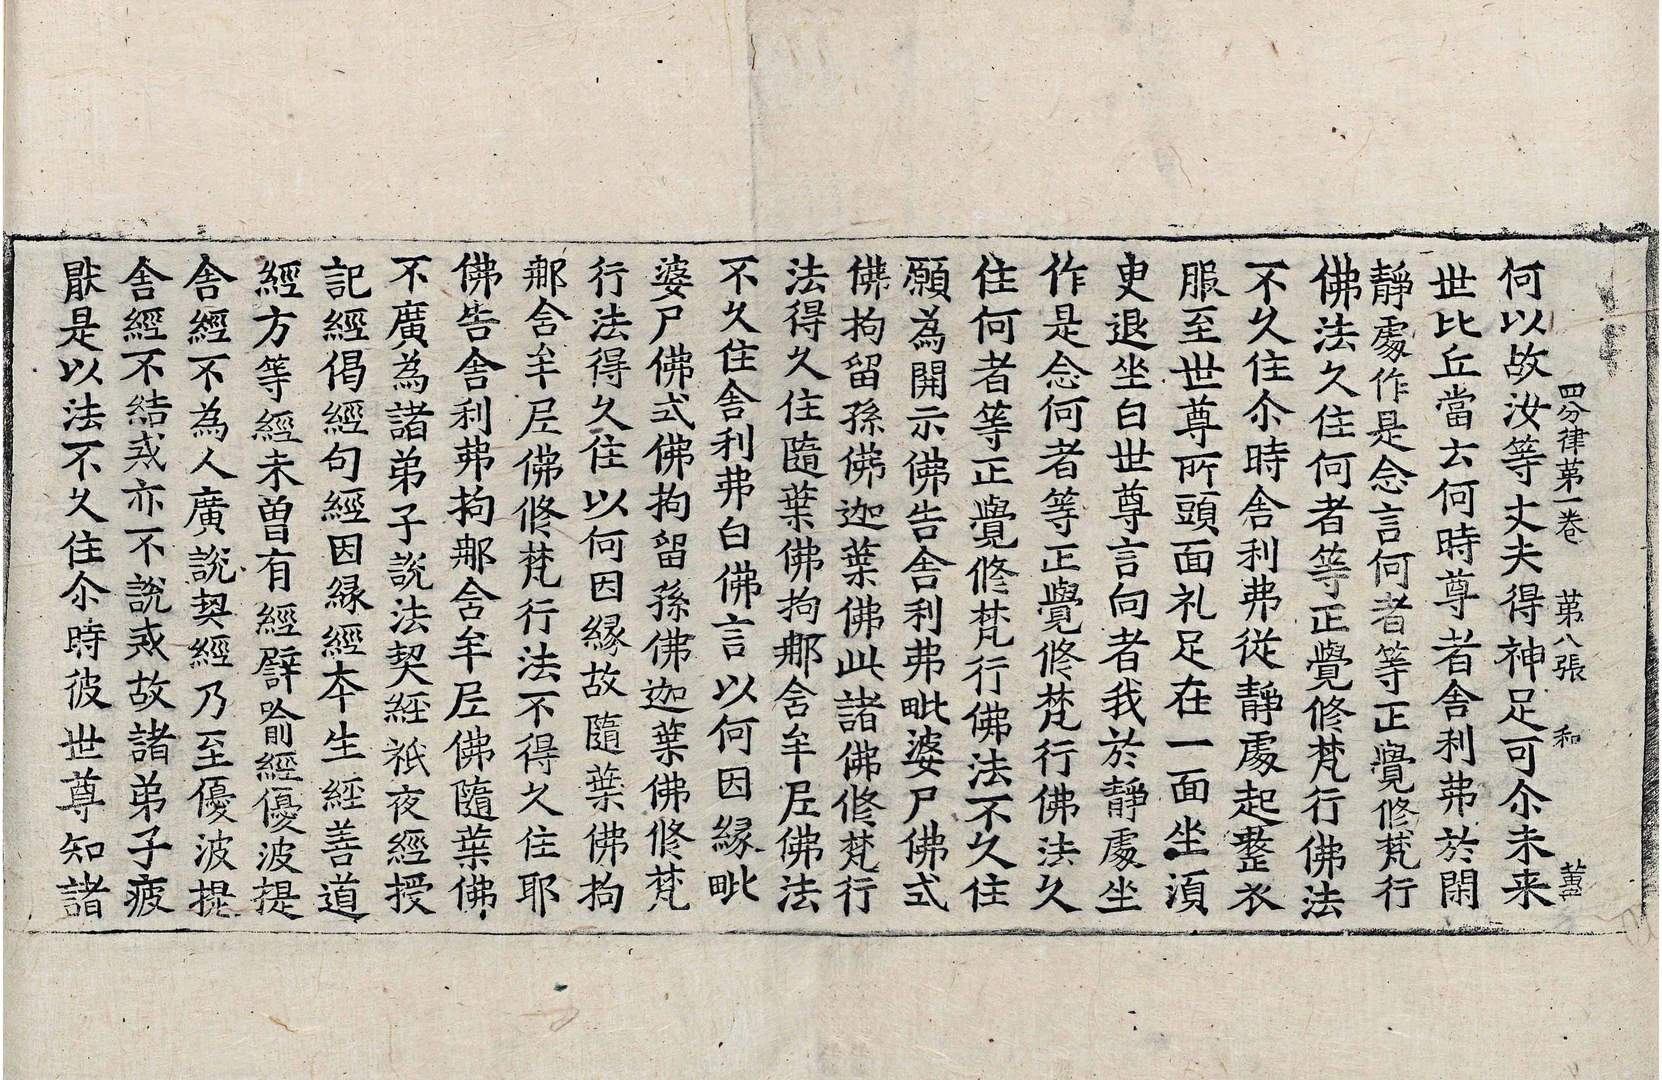 四分律苐一卷 苐八張 和
何以故汝等丈夫得神足可尒未来
世比丘當云何時尊者舍利弗於閑
靜處作是念言何者等正覺修梵行
佛法久住何者等正覺修梵行佛法
不久住尒時舍利弗從靜處起整衣
服至世尊所頭面礼足在一面坐湏
臾退坐白世尊言向者我於靜處坐
作是念何者等正覺修梵行佛法久
住何者等正覺修梵行佛法不久住
願為開示佛告舍利弗毗婆尸佛式
佛拘留孫佛迦葉佛此諸佛修梵行
法得久住隨葉佛拘郍舍牟𡰱佛法
不久住舍利弗白佛言以何因緣毗
婆尸佛式佛拘留孫佛迦葉佛修梵
行法得久住以何因緣故隨葉佛拘
郍舍牟𡰱佛修梵行法不得久住耶
佛告舍利弗拘郍舍牟𡰱佛隨葉佛
不廣為諸弟子說法契經祇夜經授
記經偈經句經因緣經本生經善道
經方等經未曽有經譬喻經優波提
舍經不為人廣說契經乃至優波提
舍經不結戒亦不說戒故諸弟子疲
猒是以法不久住尒時彼世尊知諸